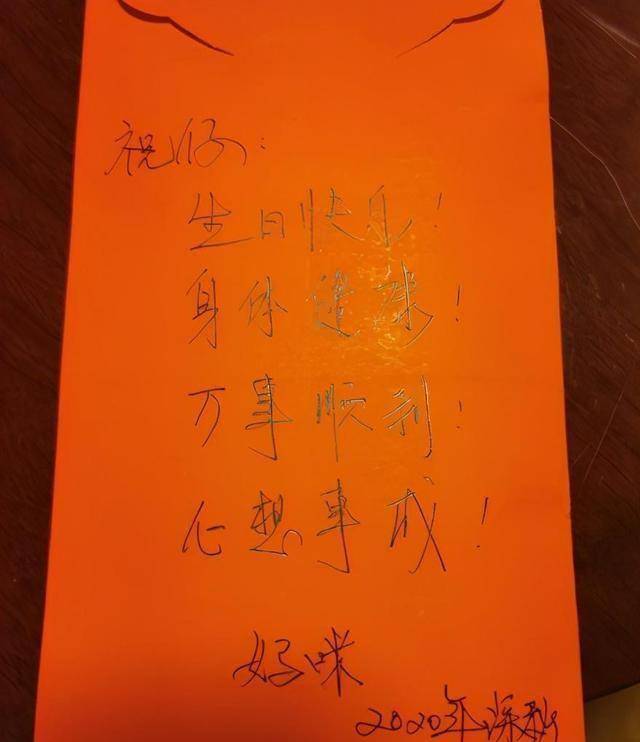 祝仔:
生日快乐!
身体健康!
万事顺利!
心想事成!
妈咪
2020年深秋